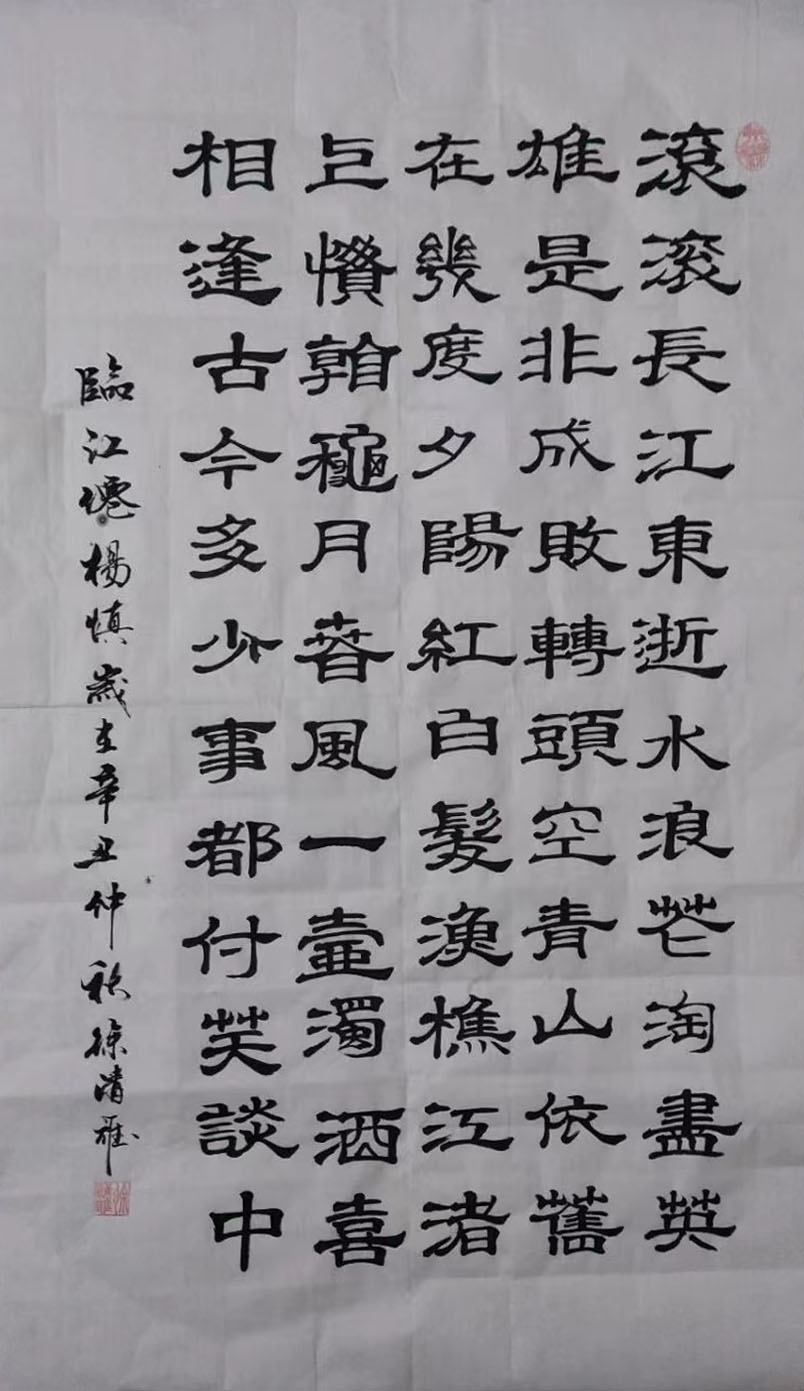 滾滾長江東逝水浪花淘盡英
雄是非成敗轉頭空青山依舊
在幾度夕陽紅白髮漁樵江渚
上慣看秋月春風一壺濁酒喜
相逢古今多少事都付笑談中
臨江仙楊慎歲在辛丑仲秋徐清雅